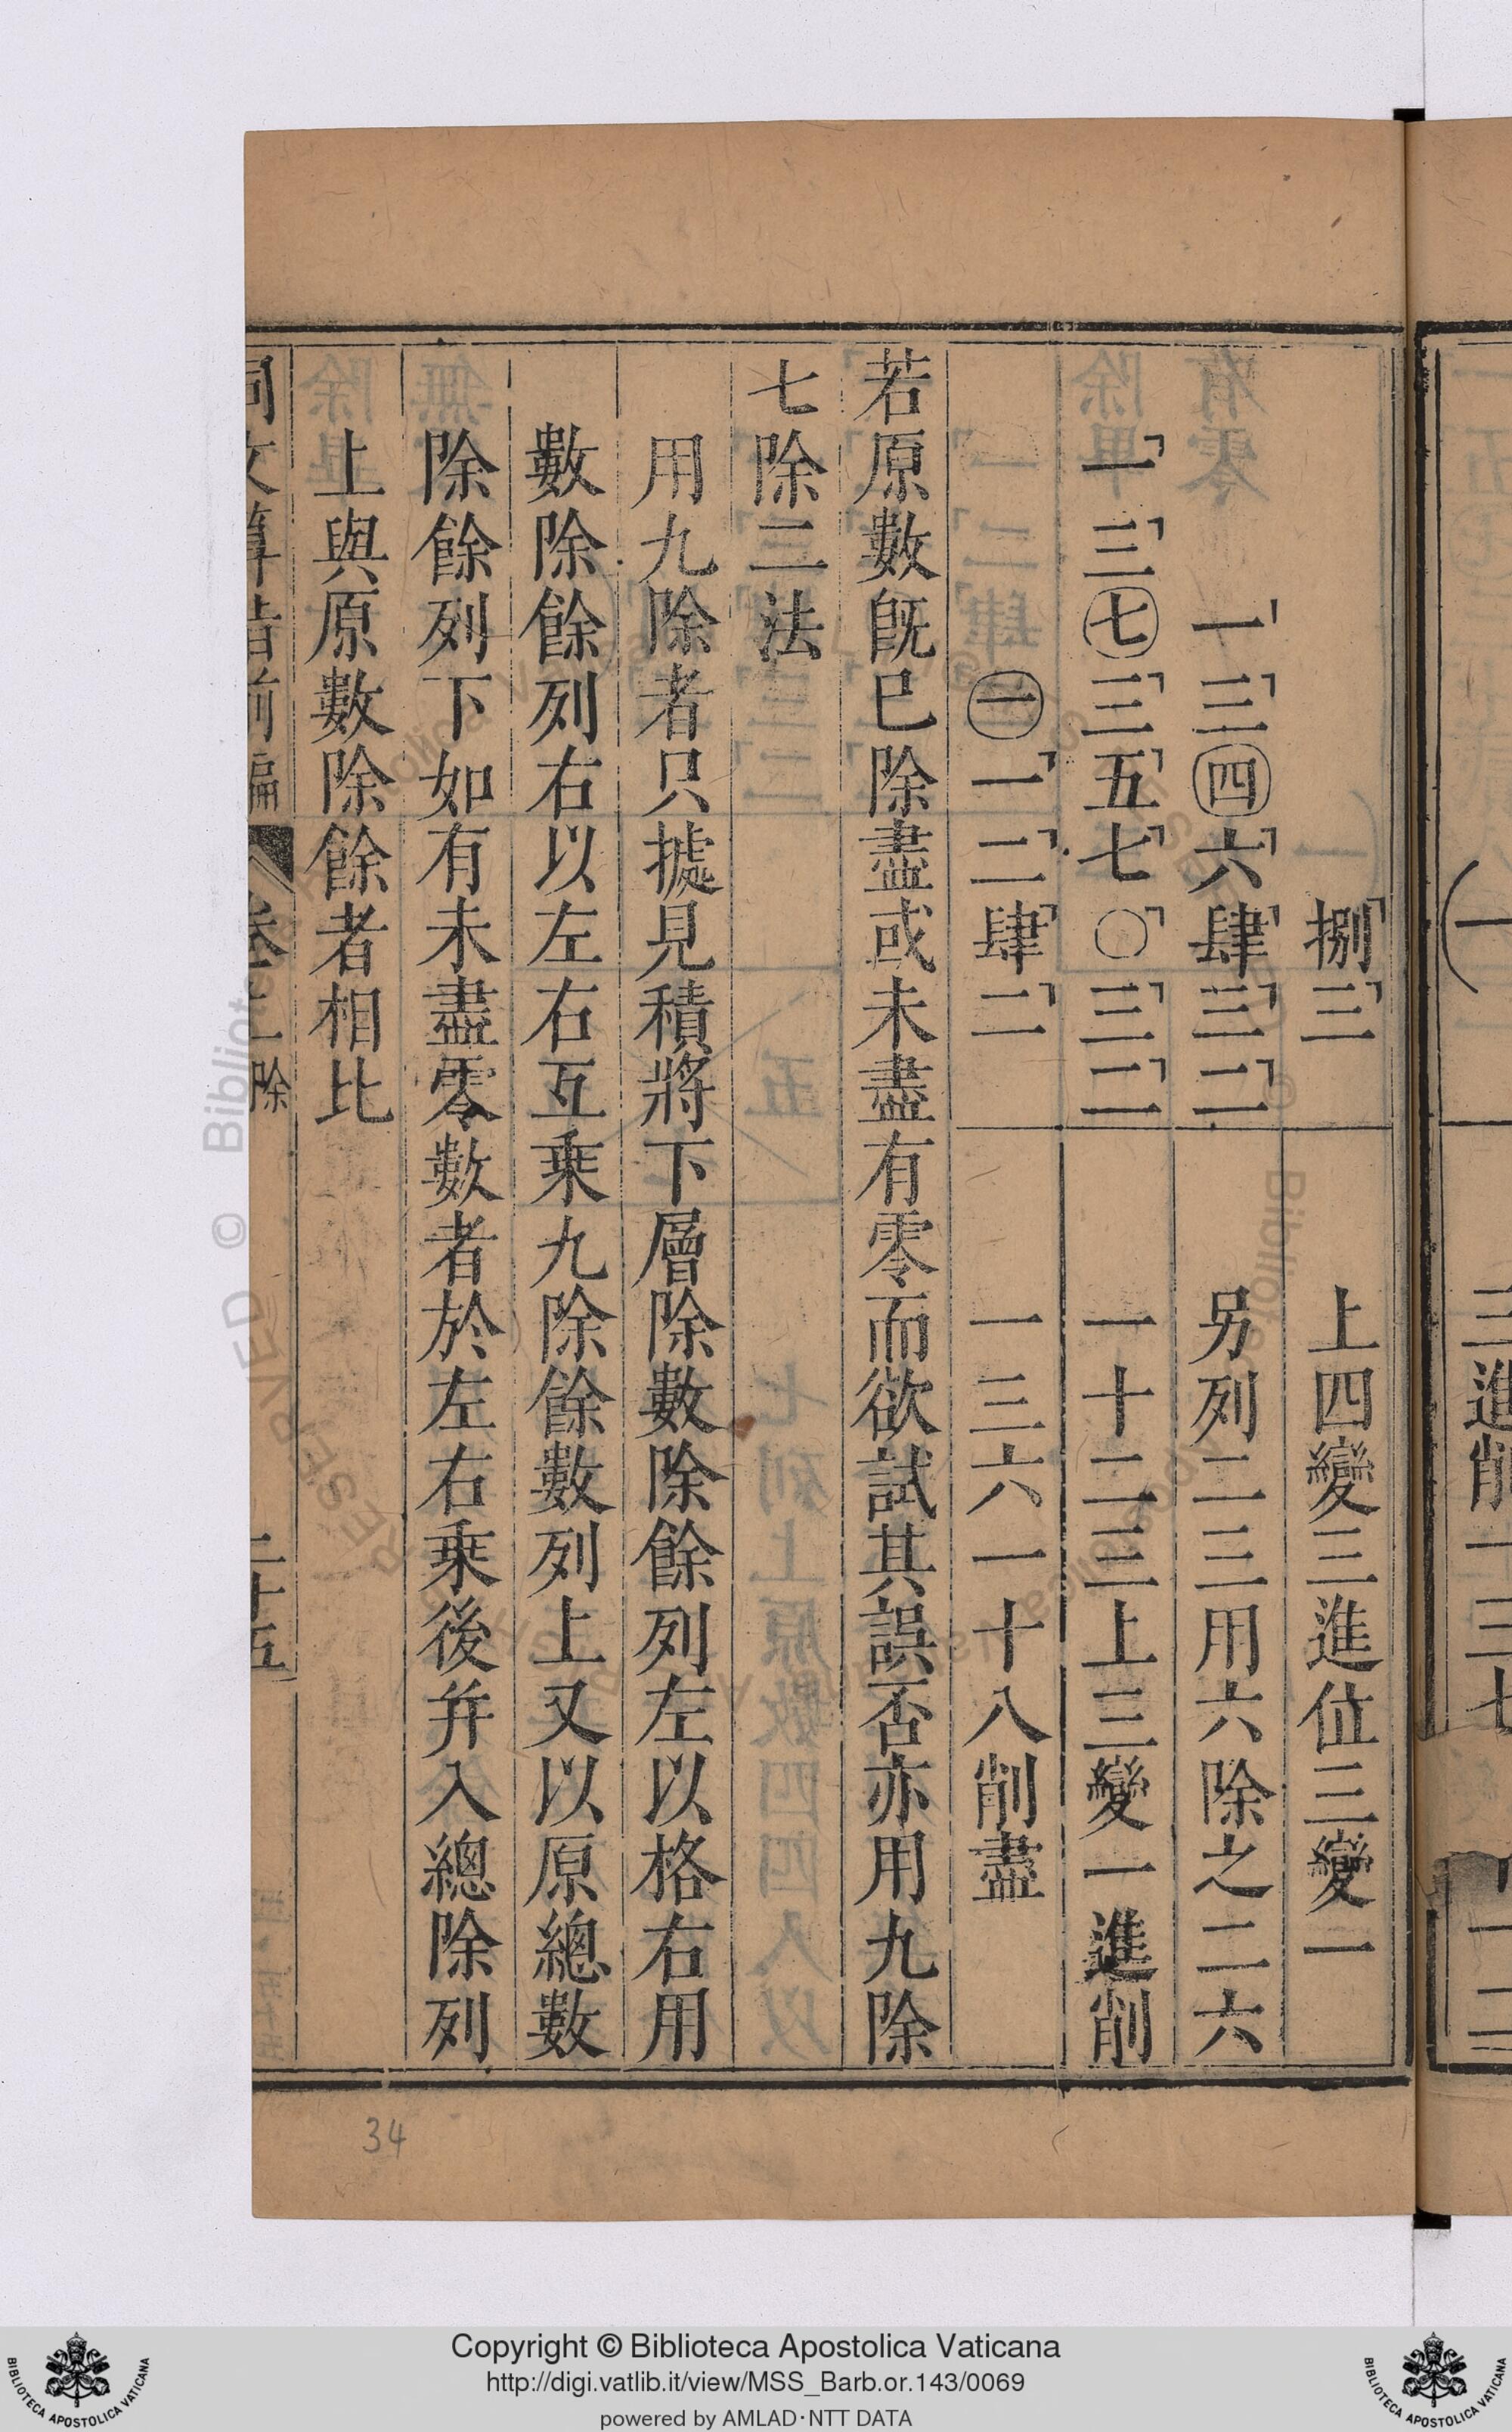 捌三　上四變三進位三變一
一三四六肆三二　另列二三用六除之二六
一三七三五七〇三二　一十二三上三變一進削
一一二肆二　一三六一十八削盡
若原數旣已除盡或未盡有零而欲試其誤否亦用九除
七除二法
用九除者只據見積將下層除數除餘列左以格右用
數除餘列右以左右互乗九除餘數列上又以原總數
除餘列下如有未盡零數者於左右乗後并入總除列
上與原數除餘者相比
同文算指前編　卷上　除　二十五
34
Copyright © Biblioteca Apostolica Vaticana
http://digi.vatlib.it/view/MSS_Barb.or.143/0069
powered by AMLAD·NTT DATA
BIBLIOTECA APOSTOLICA VATICANA
BIBLIOTECA APOSTOLICA VATICANA